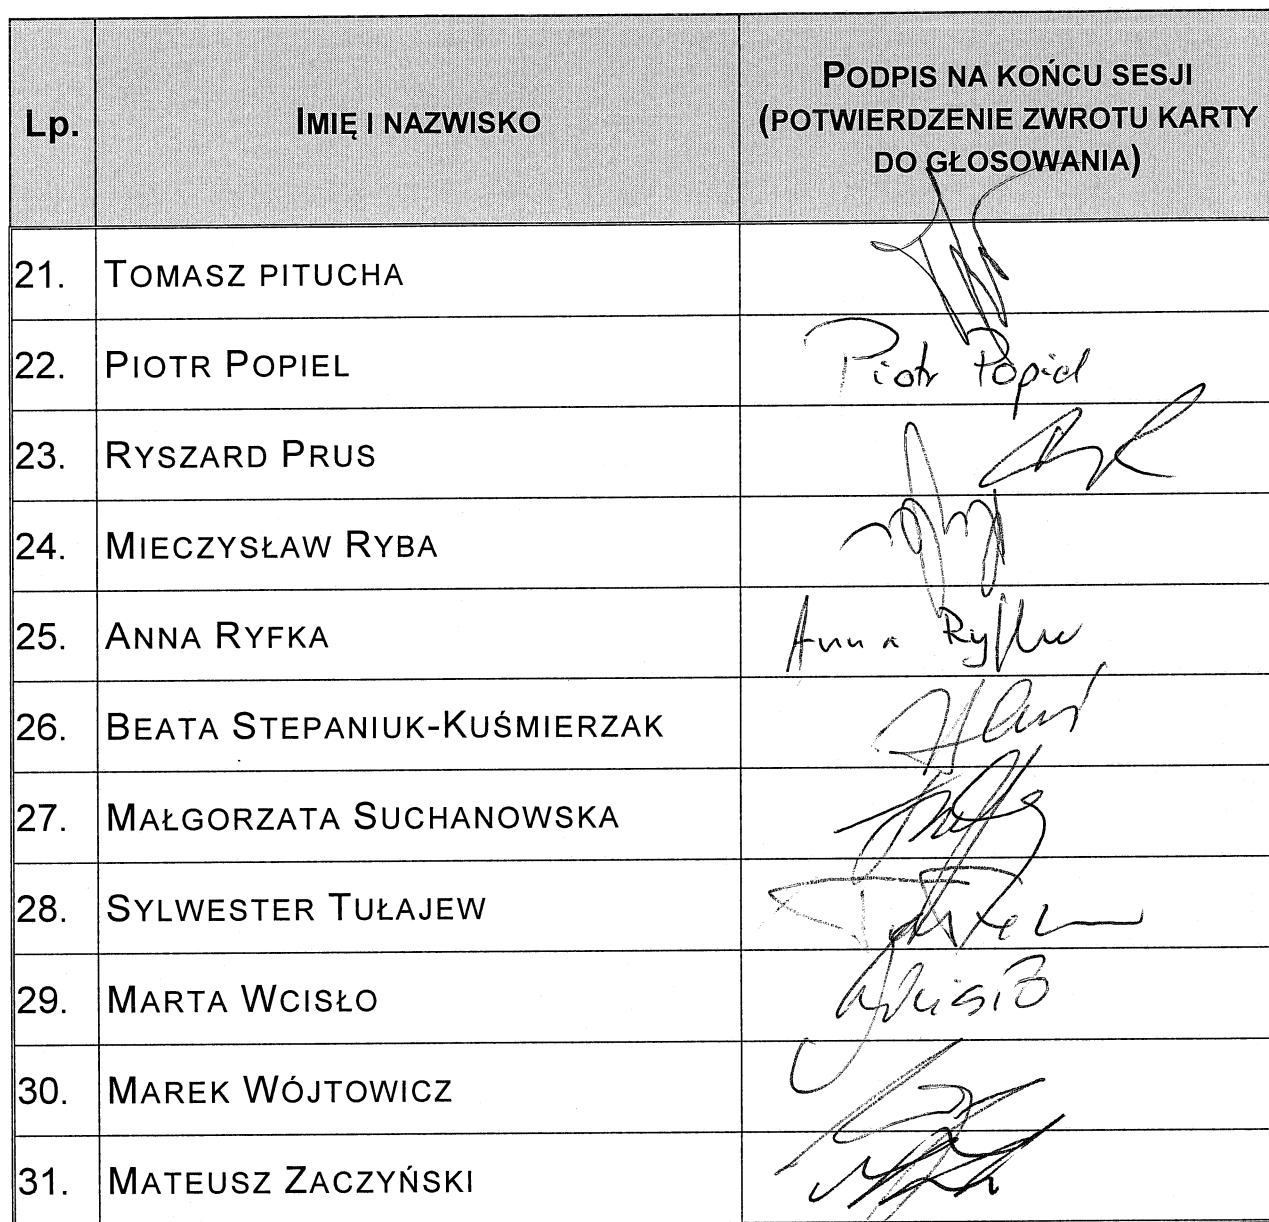 Lp.
IMIĘ I NAZWISKO
PODPIS NA KOŃCU SESJI
(POTWIERDZENIE ZWROTU KARTY
DO GŁOSOWANIA)
21. TOMASZ PITUCHA
22. PIOTR POPIEL Piotr Popiel
23. RYSZARD PRUS
24. MIECZYSŁAW RYBA
25. ANNA RYFKA Anna Ryfka
26. BEATA STEPANIUK-KUŚMIERZAK
27. MAŁGORZATA SUCHANOWSKA
28. SYLWESTER TUŁAJEW
29. MARTA WCISŁO Wcisło
30. MAREK WÓJTOWICZ
31. MATEUSZ ZACZYŃSKI